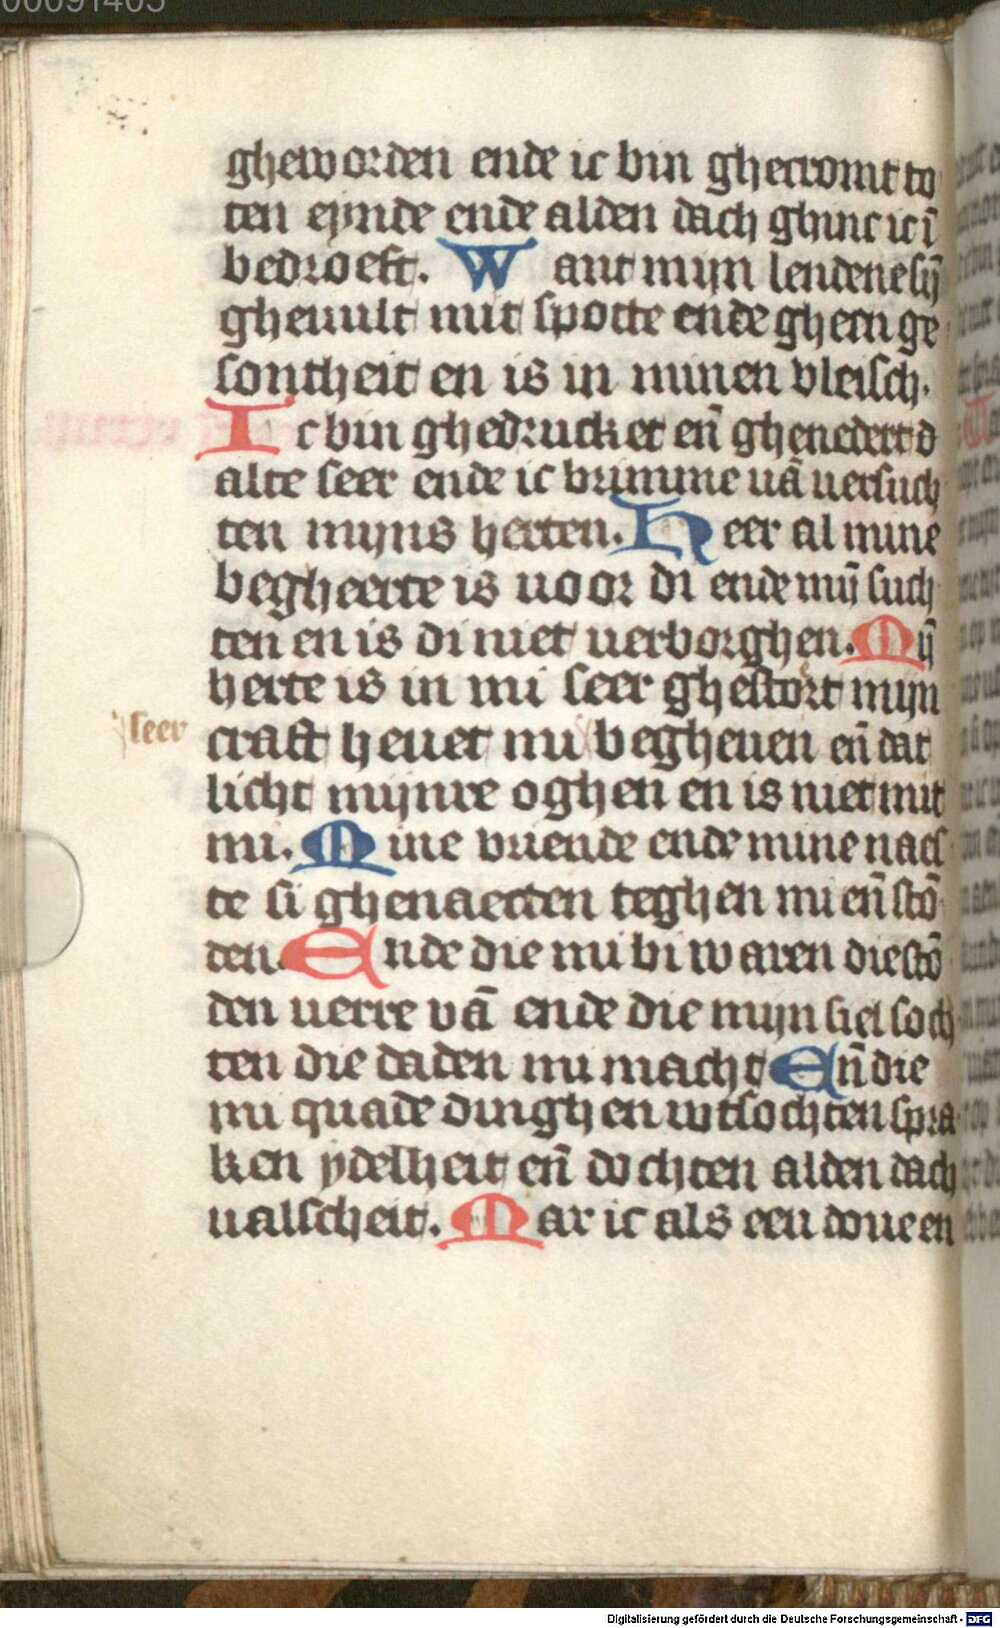 00091405
gheworden ende ic bin ghecromt to
ten eijnde ende alden dach ghinc ic ī
bedroeft. Want mijn lendene sij̄
gheuult mit spotte ende gheen ge
sontheit en is in minen vleisch.
Ic bin ghedrucket en̄ ghenedert d
alte seer ende ic brimme uā uersuch
ten mijns herten. Heer al mine
begheerte is uoor di ende mij̄ such
ten en is di niet uerborghen. Mij̄
herte is in mi seer ghestort mijn
seer
craft heuet mi begheuen en̄ dat
licht mijnre oghen en is niet mit
mi. Mine vriende ende mine naes
te si ghenaecten teghen mi en̄ stō
den. Ende die mi bi waren die stō
den uerre vā ende die mijn siel soch
ten die daden mi macht En̄ die
mi quade dinghen wtsochten spra
ken ydelheit en̄ dochten alden dach
ualscheit. Mar ic als een doue en
Digitalisierung gefördert durch die Deutsche Forschungsgemeinschaft - DFG